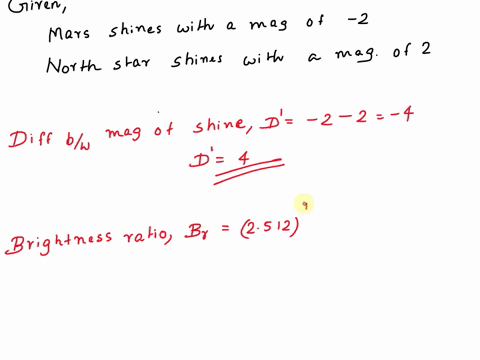 Given,
Mars shines with a mag of -2
North star shines with a mag. of 2
Diff b/w mag of shine, D' = -2 - 2 = -4
D' = 4
Brightness ratio, Br = (2.512)